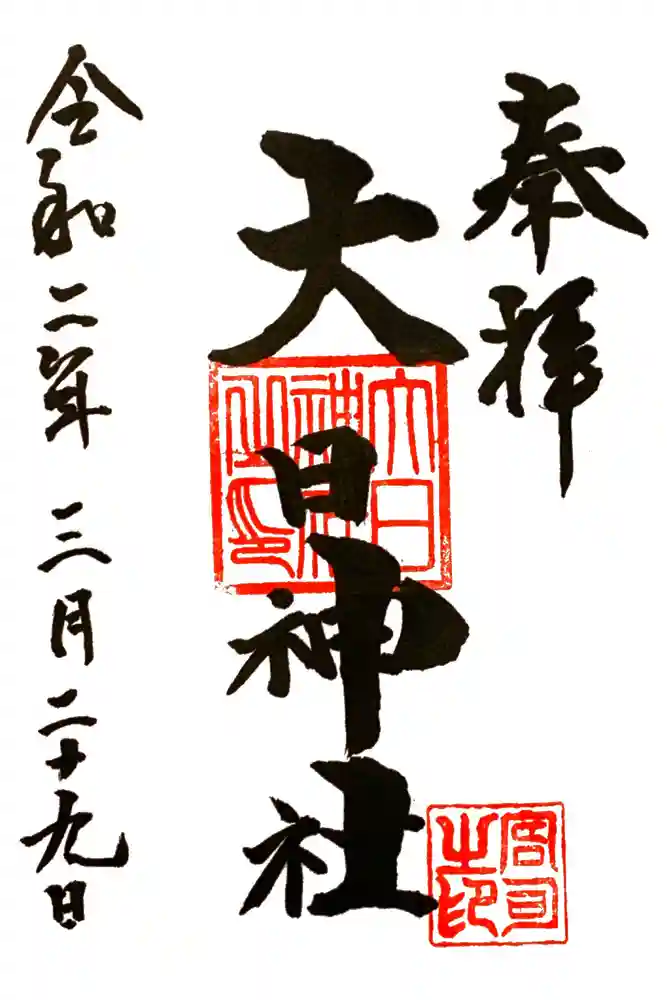 奉拝
大日神社
大日神社之印
宮司之印
令和二年三月二十九日